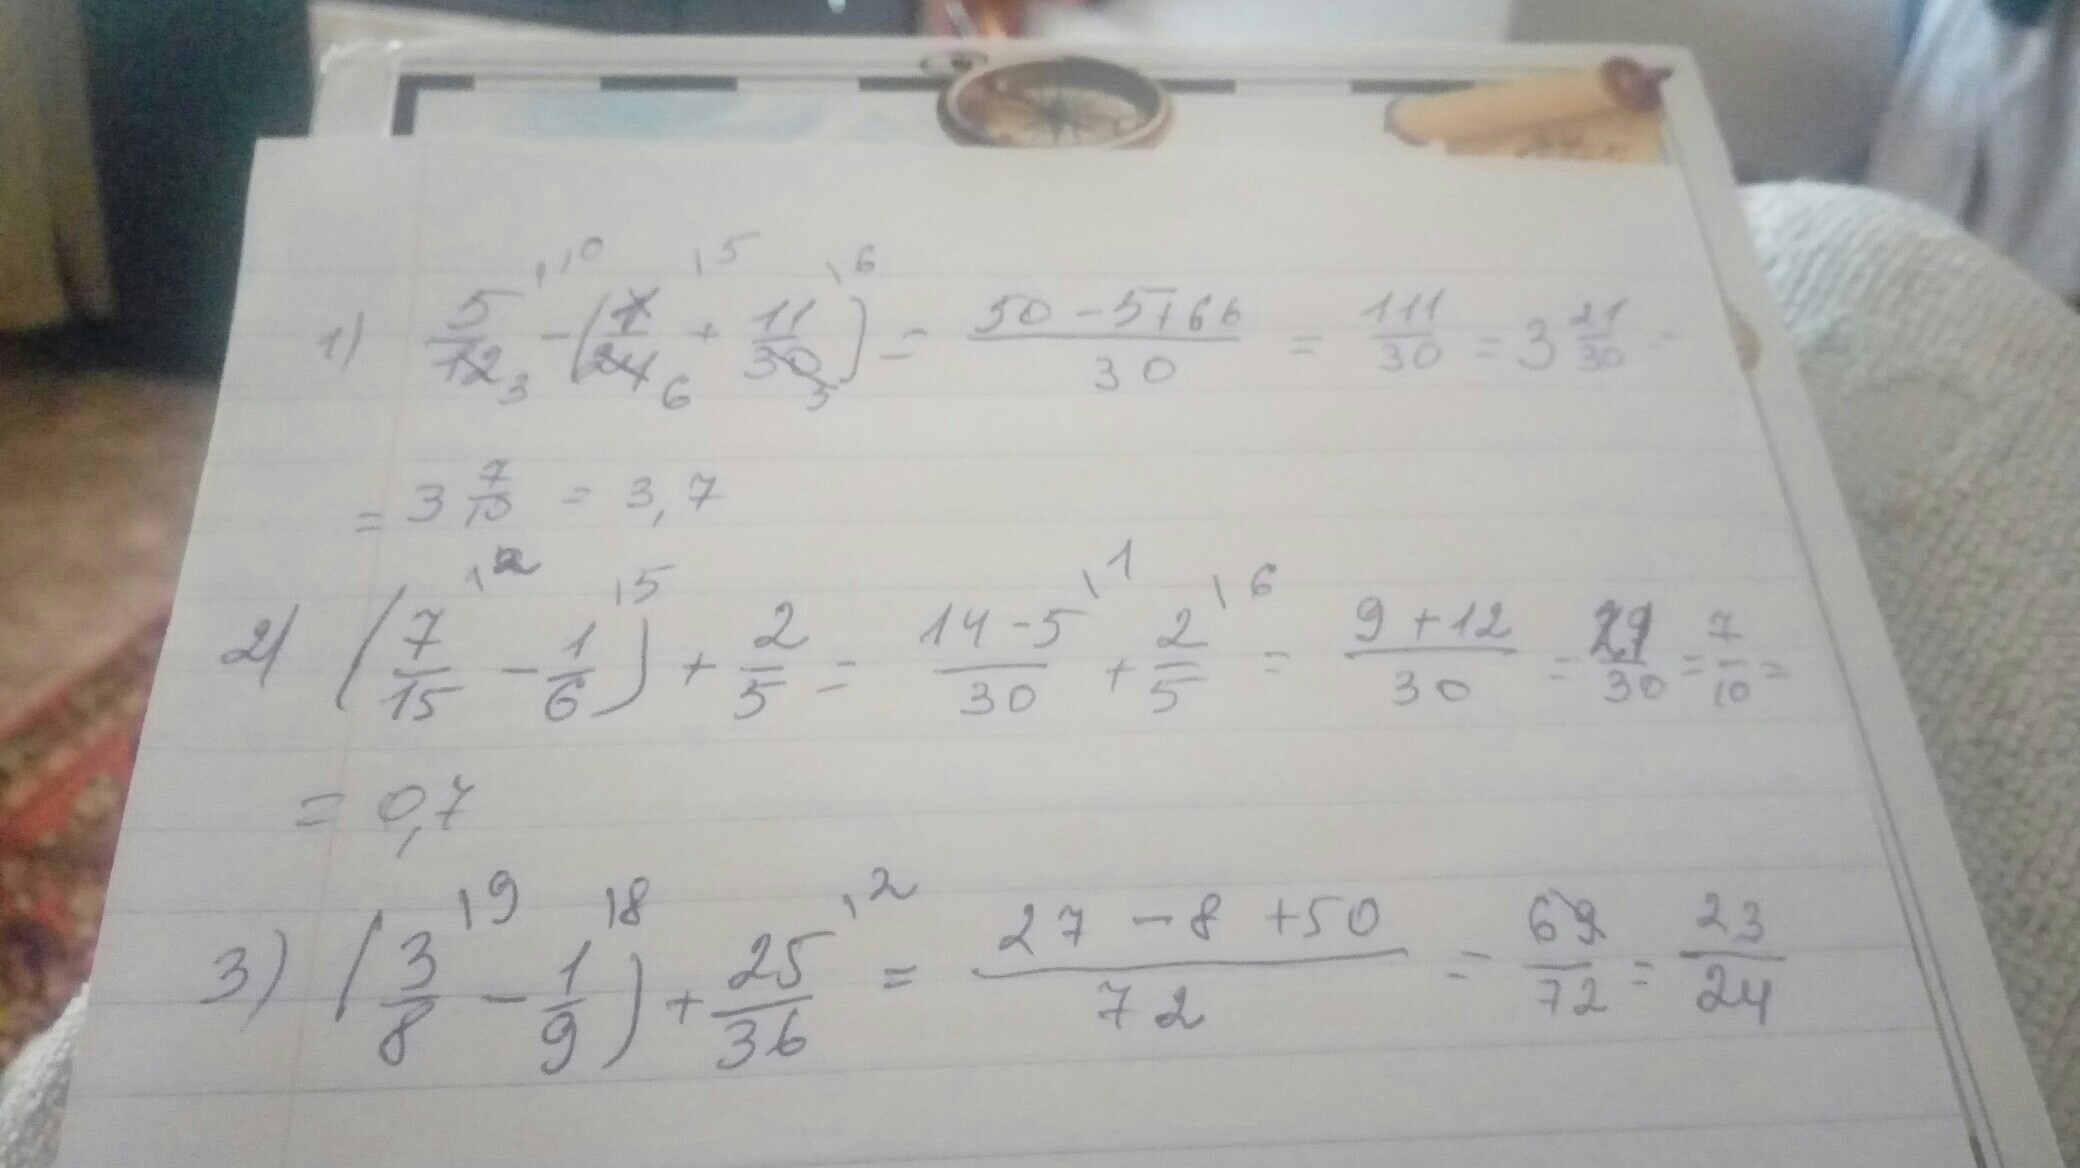 1) 5/12 3 \10 - (1/24 6 \5 + 11/30 5 \6) = 50 - 5 + 66/30 = 111/30 = 3 21/30 =
= 3 7/10 = 3,7
2) (7/15 \2 - 1/6 \5) + 2/5 = 14 - 5/30 \1 + 2/5 \6 = 9 + 12/30 = 21/30 = 7/10 =
= 0,7
3) (3/8 \9 - 1/9 \8) + 25/36 \2 = 27 - 8 + 50/72 = 69/72 = 23/24